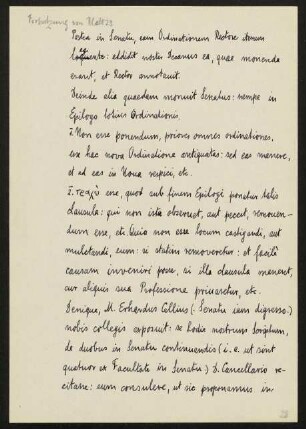 Fortsetzung von Blatt 22
Postea in Senatu, eam Ordinationem Rectore iterum
loquente: addidit noster Decanus ea, quae monenda
erant, et Rector annotavit.
Deinde alia quaedam monuit Senatus: nempe in
Epilogo totius Ordinationis,
I. Non esse ponendum, priores omnes ordinationes,
esse hac nova Ordinatione antiquatas: sed eas manere,
et ad eas in Nova respici, etc.
II. esse, quod sub finem Epilogi ponatur talis
clausula: qui non ista observent, aut peccet, removen-
dum esse, etc. Quia non esse locum castigandi, aut
mulctandi, eum: si statim removeretur: et facile
causam inveniri posse, si illa clausula maneret,
cur aliquis sua Professione privaretur, etc.
Denique, M. Erhardus Cellius (Senatu iam digresso)
nobis collegis exposuit: se hodie nostrum Scriptum,
de duobus in Senatum (i. e. ut sint
quatuor ex Facultate in Senatu) D. Cancellario re-
citasse: eum consulere, ut sic proponamus in